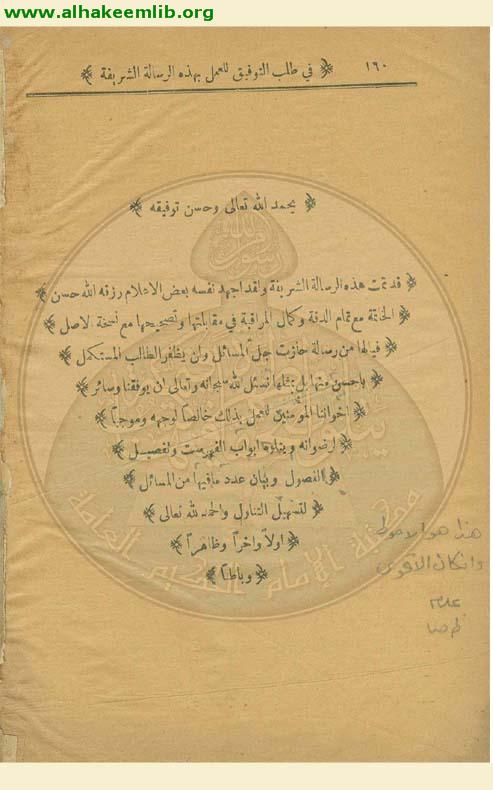 www.alhakeemlib.org
١٦٠ ﴿ في طلب التوفيق للعمل بهذه الرسالة الشريفة ﴾
﴿ بحمد الله تعالى وحسن توفيقه ﴾
﴿ قد تمت هذه الرسالة الشريفة ولقد اجهد نفسه بعض الاعلام رزقه الله حسن ﴾
﴿ الخاتمة مع تمام الدقة وكمال المراقبة في مقابلتها وتصحيحها مع نسخة الاصل ﴾
﴿ فيالها من رسالة حازت جل المسائل ولن يظفر الطالب المستكمل ﴾
﴿ باحسن منها بل بمثلها نسئل الله سبحانه وتعالى ان يوفقنا وسائر ﴾
﴿ اخواننا المؤمنين للعمل بذلك خالصا لوجهه وموجباً ﴾
﴿ لرضوانه ويتلوه ابواب الفهرست وتفصيل ﴾
﴿ الفصول وبيان عدد مافيها من المسائل ﴾
﴿ لتسهيل التناول والحمد لله تعالى ﴾
﴿ اولاً واخراً وظاهراً ﴾
﴿ وباطناً ﴾
هذا هو الاحوط
وان كان الاقوى
مكتبة الإمام الحكيم العامة